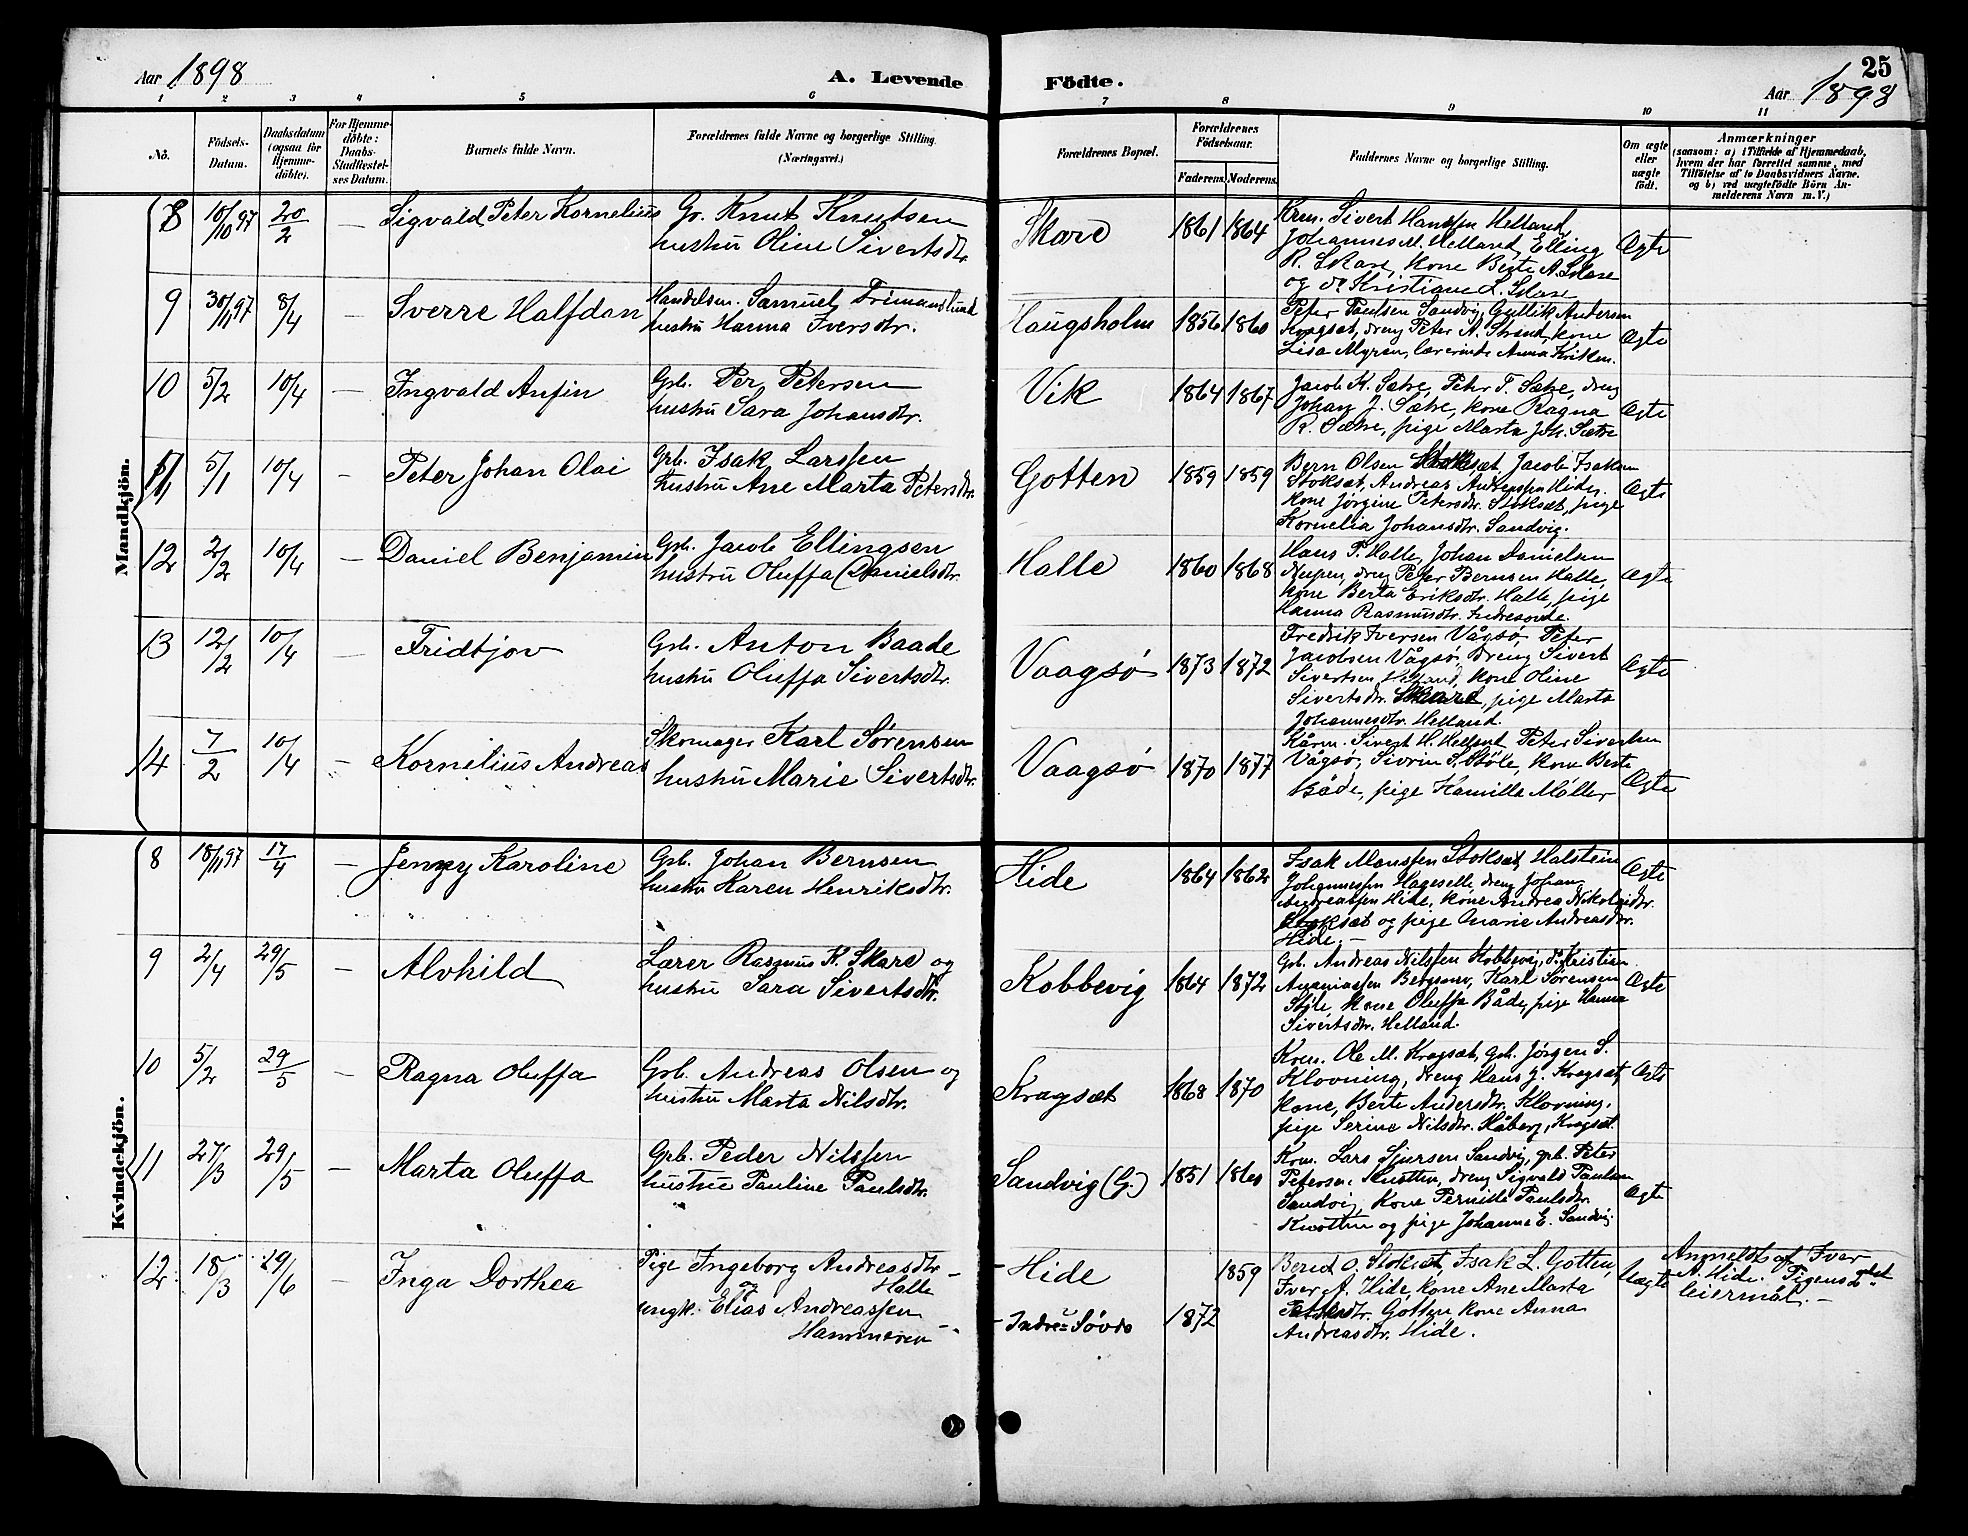 Aar 1898
A. Levende
Födte.
25
Aar 1898
1 2 3 4 5 6 7 8 9 10 11
No.
Födsels-
Datum.
Daabsdatum
(ogsaa for
Hjemme-
döbte).
For Hjemme-
döbte:
Daabs-
Stadfæstel-
ses Datum.
Barnets fulde Navn.
Forældrenes fulde Navne og borgerlige Stilling.
(Næringsvei.)
Forældrenes Bopæl.
Forældrenes
Födselsaar.
Faderens. Moderens.
Faddernes Navne og borgerlige Stilling.
Om ægte
eller
uægte
födt.
Anmærkninger
(saasom: a) i Tilfælde af Hjemmedaab,
hvem der har forrettet samme, med
Tilföielse af to Daabsvidners Navne.
og b) ved uægtefödte Börn An-
melderens Navn m. V.)
Mandkjön.
8 10/10 97 20/2 — Sigvald Peter Kornelius
Gr. Knut Knutsen
hustru Oline Sivertsdtr.
Skare 1861 1864
Krm. Sivert Hanssen Helland,
Johannes M. Helland, Elling
R. Skare, kone Berte A. Skare
og do Kristiane L. Skare
Ægte
9 30/11 97 8/4 — Sverre Halfdan
Handelsm. Samuel Frimandslund
hustru Hanna Iversdtr.
Haugsholm 1856 1860
Peter Paulsen Sandvig, Gullik Andersen
Kragsæt, dreng Peter A. Strand, kone
Lisa Myren, lærerinde Anna Eriksen.
Ægte
10 5/2 10/4 — Ingvald Anfin
Grb. Per Petersen
hustru Sara Johansdtr.
Vik 1864 1867
Jacob K. Sætre, Peter T. Sætre, dreng
Johan J. Sætre, kone Ragna
R. Sætre, pige Marta Joh. Sætre
Ægte
11 5/1 10/4 — Peter Johan Olai
Grb. Isak Larssen
hustru Ane Marta Petersdtr.
Gotten 1859 1859
Bern Olsen Stoksæt, Jacob Isaksen
Stoksæt, Andreas Andreassen Hide,
kone Jørgine Petersdtr. Stoksæt, pige
Kornelia Johansdtr. Sandvig.
Ægte
12 2/2 10/4 — Daniel Benjamin
Grb. Jacob Ellingsen
hustru Oluffa Danielsdtr.
Halle 1860 1868
Hans P. Halle, Johan Danielsen
Neupen, dreng Peter Bernsen Halle,
kone Berta Eriksdtr. Halle, pige
Hanna Rasmusdtr. Indresovde.
Ægte
13 12/2 10/4 — Fridtjov
Grb. Anton Baade
hustru Oluffa Sivertsdtr.
Vaagsø 1873 1872
Fredrik Iversen Vågsø, Peter
Jacobsen Vågsø, dreng Sivert
Sivertsen Helland, kone Oline
Sivertsdtr. Skare, pige Marta
Johannesdtr. Helland.
Ægte
14 7/2 10/4 — Kornelius Andreas
Skomager Karl Sørensen
hustru Marie Sivertsdtr.
Vaagsø 1870 1877
Kårm. Sivert H. Helland, Peter Sivertsen
Vågsø, Sivrin S. Støle, kone Berte
Både, pige Hamilla Møller
Ægte
Kvindekjön.
8 18/11 97 17/4 — Jenny Karoline
Grb. Johan Bernsen
hustru Karen Henriksdtr.
Hide 1864 1862
Isak Monssen Stoksæt, Halstein
Johannessen Hageselle, dreng Johan
Andreassen Hide, kone Andrea Nikolaidtr.
Stoksæt og pige Marie Andreasdtr.
Hide. —
Ægte
9 2/4 29/5 — Alvhild
Lærer Rasmus K. Skare og
hustru Sara Sivertsdtr.
Kobbevig 1864 1872
Grb. Andreas Nilssen Kobbevig, do Kristian
Rasmussen Bergsnev, Karl Sørensen
Støle, kone Oluffa Både, pige Hanna
Sivertsdtr. Helland.
Ægte
10 5/2 29/5 — Ragna Oluffa
Grb. Andreas Olsen og
hustru Marta Nilsdtr.
Kragsæt 1868 1870
Krm. Ole M. Kragsæt, grb. Jørgen S.
Klovning, dreng Hans J. Kragsæt,
kone, Berte Andersdtr. Klovning,
pige Serine Nilsdtr. Håberg, Kragsæt.
Ægte
11 27/3 29/5 — Marta Oluffa
Grb. Peder Nilssen
hustru Pauline Paulsdtr.
Sandvig (G.) 1851 1860
Krm. Lars Sjursen Sandvig, grb. Peter
Petersen Knotten, dreng Sigvald Paulsen
Sandvig, kone Pernille Paulsdtr.
Knotten og pige Johanne E. Sandvig.
Ægte
12 18/3 29/6 — Inga Dorthea
Pige Ingeborg Andreasdtr —
Halle
og
ungk. Elias Andreassen
Hammeren —
Hide 1859
Indre Søvde 1872
Bernd O. Stoksæt, Isak L. Gotten,
Iver A. Hide, kone Ane Marta
Petersdtr. Gotten, kone Anna
Andreasdtr. Hide.
Uægte
Anmeldt af Iver
A. Hide. Pigens 2det
leiermål. —